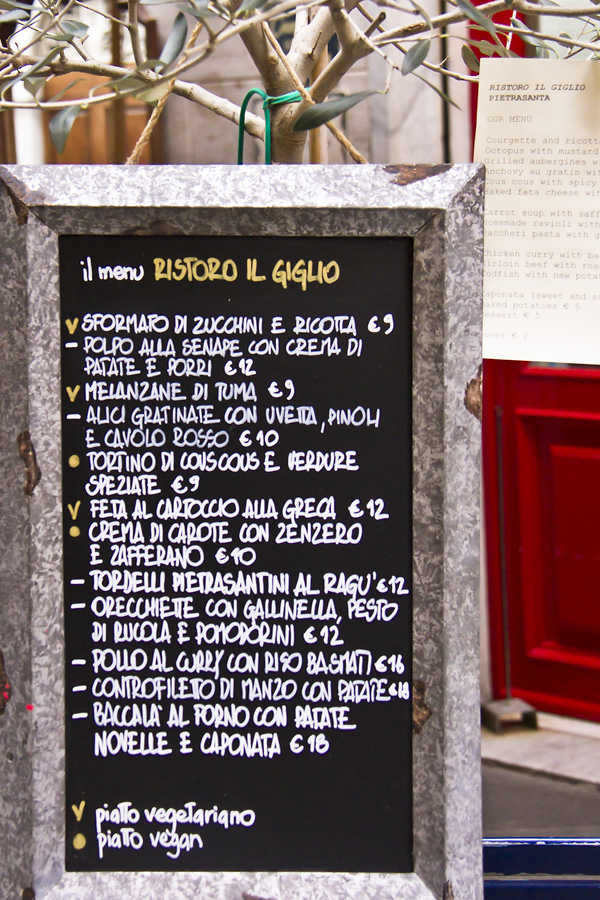 il menu RISTORO IL GIGLIO
V SFORMATO DI ZUCCHINI E RICOTTA € 9
- POLPO ALLA SENAPE CON CREMA DI
PATATE E PORRI € 12
V MELANZANE DI TUMA € 9
- ALICI GRATINATE CON UVETTA, PINOLI
E CAVOLO ROSSO € 10
• TORTINO DI COUSCOUS E VERDURE
SPEZIATE € 9
V FETA AL CARTOCCIO ALLA GRECA € 12
• CREMA DI CAROTE CON ZENZERO
E ZAFFERANO € 10
- TORDELLI PIETRASANTINI AL RAGU' € 12
- ORECCHIETTE CON GALLINELLA, PESTO
DI RUCOLA E POMODORINI € 12
- POLLO AL CURRY CON RISO BASMATI € 16
- CONTROFILETTO DI MANZO CON PATATE € 18
- BACCALA' AL FORNO CON PATATE
NOVELLE E CAPONATA € 18
V piatto vegetariano
• piatto vegan
RISTORO IL GIGLIO
PIETRASANTA
OUR MENU
Courgette and ricott
Octopus with mustard
Grilled aubergines w
anchovy au gratin wit
cous cous with spicy
baked feta cheese wit
Carrot soup with saff
Homemade ravioli with
Paccheri pasta with g
Chicken curry with ba
Sirloin beef with roas
Codfish with new potat
Caponata (sweet and so
baked potatoes € 5
dessert € 5
cover € 2